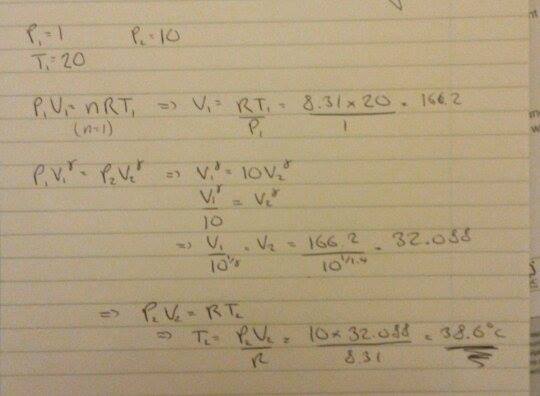 P₁ = 1 P₂ = 10
T₁ = 20
P₁V₁ = nRT₁ ⇒ V₁ = RT₁/P₁ = 8.31 × 20/1 = 166.2
(n=1)
P₁V₁^γ = P₂V₂^γ ⇒ V₁^γ = 10V₂^γ
V₁^γ/10 = V₂^γ
⇒ V₁/10^(1/γ) = V₂ = 166.2/10^(1/1.4) = 32.088
⇒ P₂V₂ = RT₂
⇒ T₂ = P₂V₂/R = 10 × 32.088/8.31 = 38.6°C